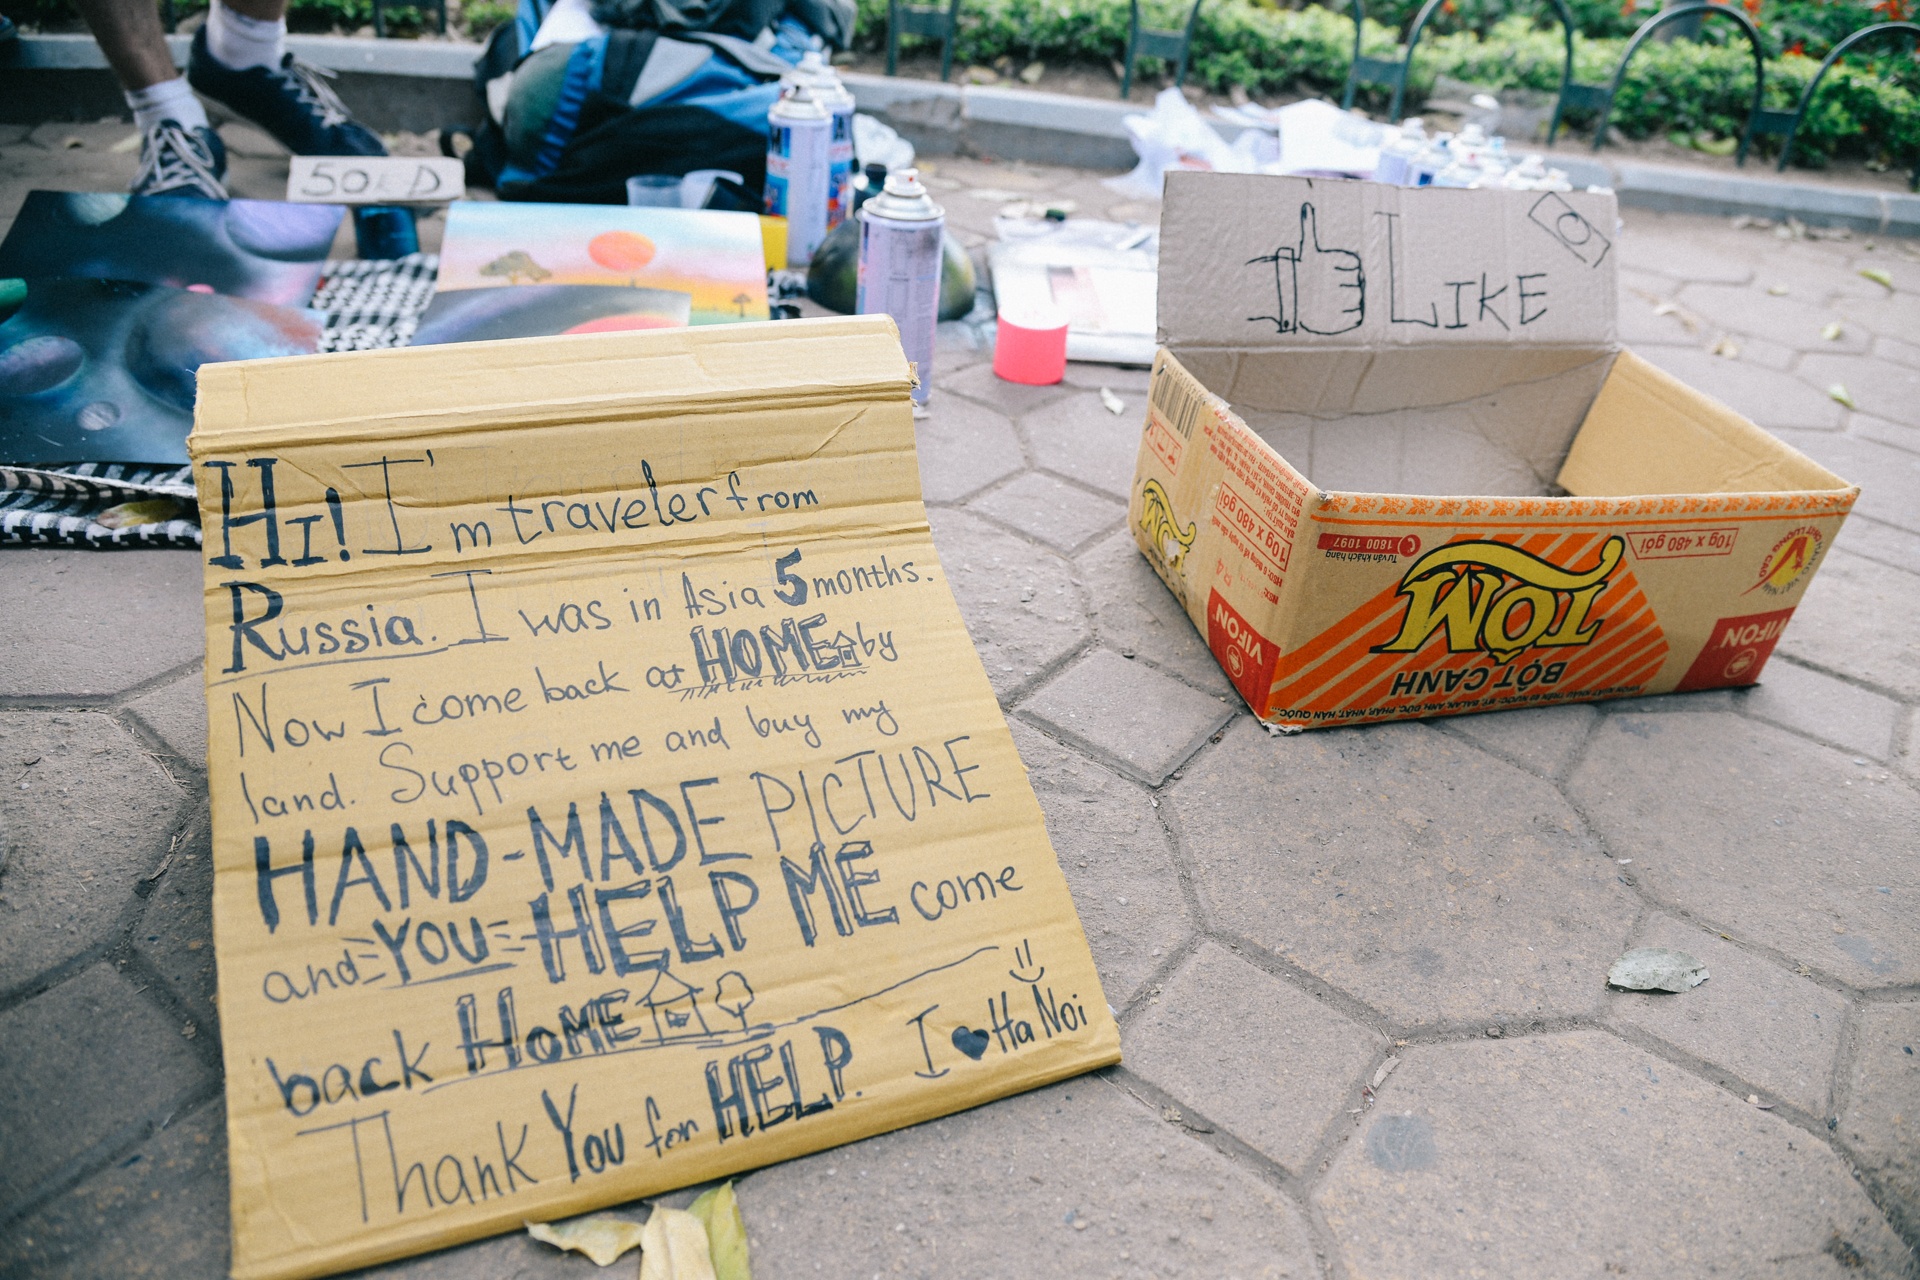 50K D
I LIKE
Hi! I'm traveler from
Russia. I was in Asia 5 months.
Now I come back at HOME by
land. Support me and buy my
HAND-MADE PICTURE
and YOU HELP ME come
back HOME
Thank You for HELP. I ♥ Ha Noi
TÔM
BỘT CANH
VIFON
VIFON
10g x 480 gói
10g x 480 gói
Tư vấn khách hàng
1800 1097